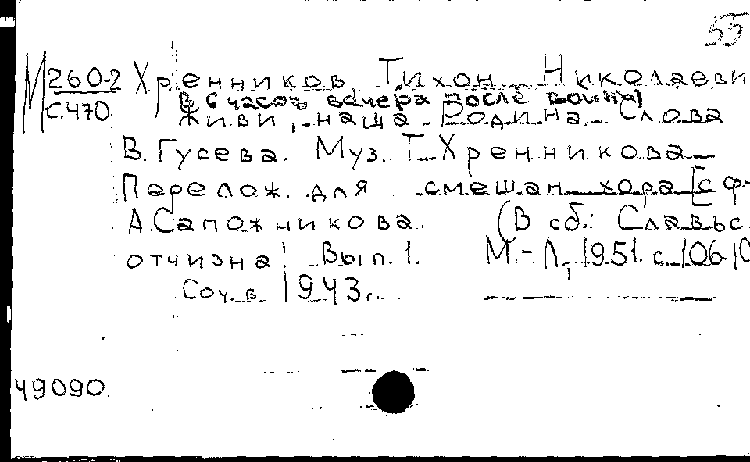 55
М 260-2 Хренников, Тихон Николаеви
С.470 В 6 часов вечера после войны
Живи, наша Родина. Слова
В. Гусева. Муз. Т. Хренникова
Перелож. для смешан. хора [с ф-
А. Сапожникова. (В сб.: Славьс
отчизна! Вып. 1. М.-Л., 1951. с. 106
Соч. в 1943 г.
49090